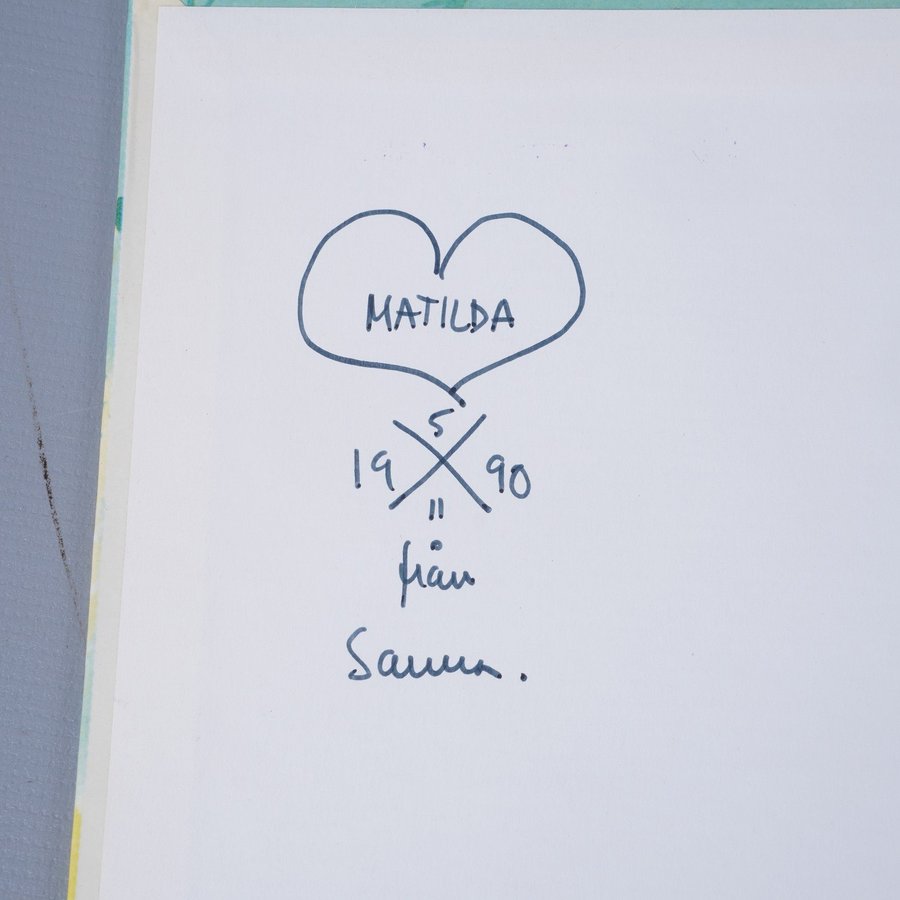 MATILDA
5
19 90
11
från
Sanna.